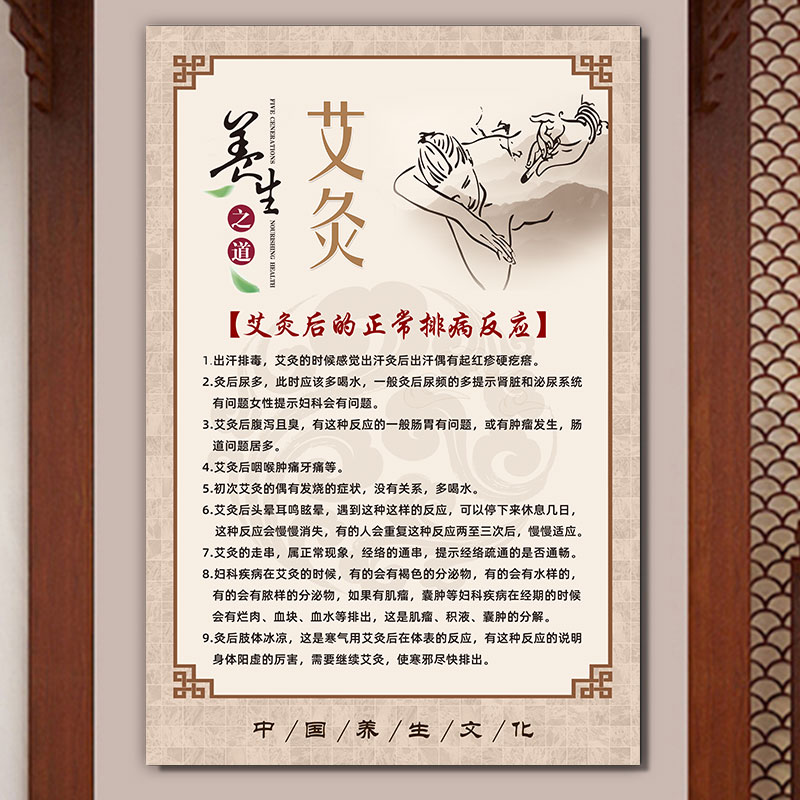 养生
之道
FIVE CENERATIONS
NOURISHING HEALTH
艾灸
【艾灸后的正常排病反应】
1.出汗排毒，艾灸的时候感觉出汗灸后出汗偶有起红疹硬疙瘩。
2.灸后尿多，此时应该多喝水，一般灸后尿频的多提示肾脏和泌尿系统
有问题女性提示妇科会有问题。
3.艾灸后腹泻且臭，有这种反应的一般肠胃有问题，或有肿瘤发生，肠
道问题居多。
4.艾灸后咽喉肿痛牙痛等。
5.初次艾灸的偶有发烧的症状，没有关系，多喝水。
6.艾灸后头晕耳鸣眩晕，遇到这种这样的反应，可以停下来休息几日，
这种反应会慢慢消失，有的人会重复这种反应两至三次后，慢慢适应。
7.艾灸的走串，属正常现象，经络的通串，提示经络疏通的是否通畅。
8.妇科疾病在艾灸的时候，有的会有褐色的分泌物，有的会有水样的，
有的会有脓样的分泌物，如果有肌瘤，囊肿等妇科疾病在经期的时候
会有烂肉、血块、血水等排出，这是肌瘤、积液、囊肿的分解。
9.灸后肢体冰凉，这是寒气用艾灸后在体表的反应，有这种反应的说明
身体阳虚的厉害，需要继续艾灸，使寒邪尽快排出。
中/国/养/生/文/化